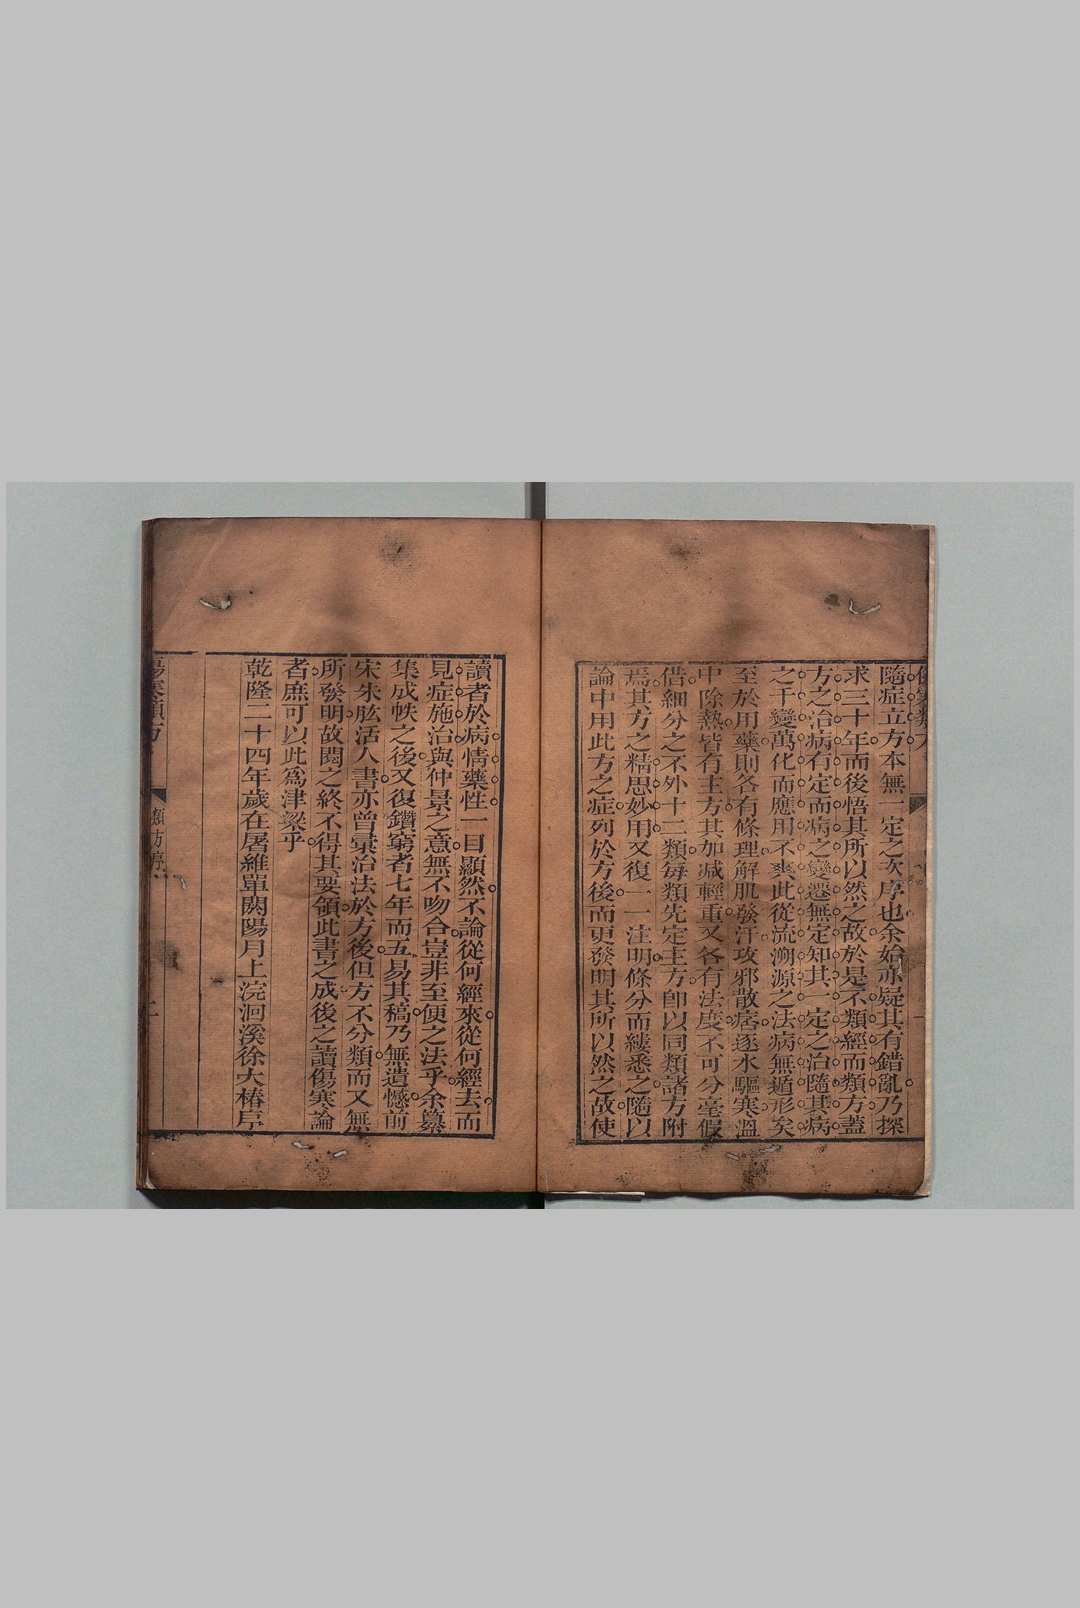 隨症立方本無一定之次序也余始亦疑其有錯亂乃探
求三十年而後悟其所以然之故於是不類經而類方蓋
方之治病有定而病之變遷無定知其一定之治隨其病
之千變萬化而應用不爽此從流溯源之法病無遁形矣
至於用藥則各有條理解肌發汗攻邪散痞逐水驅寒溫
中除熱皆有主方其加減輕重又各有法度不可分毫假
借細分之不外十二類每類先定主方卽以同類諸方附
焉其方之精思妙用又復一一注明條分而縷悉之隨以
論中用此方之症列於方後而更發明其所以然之故使
讀者於病情藥性一目顯然不論從何經來從何經去而
見症施治與仲景之意無不吻合豈非至便之法乎余纂
集成帙之後又復鑽窮者七年而五易其稿乃無遺憾前
宋朱肱活人書亦曾彙治法於方後但方不分類而又無
所發明故閱之終不得其要領此書之成後之讀傷寒論
者庶可以此爲津梁乎
乾隆二十四年歲在屠維單閼陽月上浣洄溪徐大椿序
傷寒類方
類方序
二